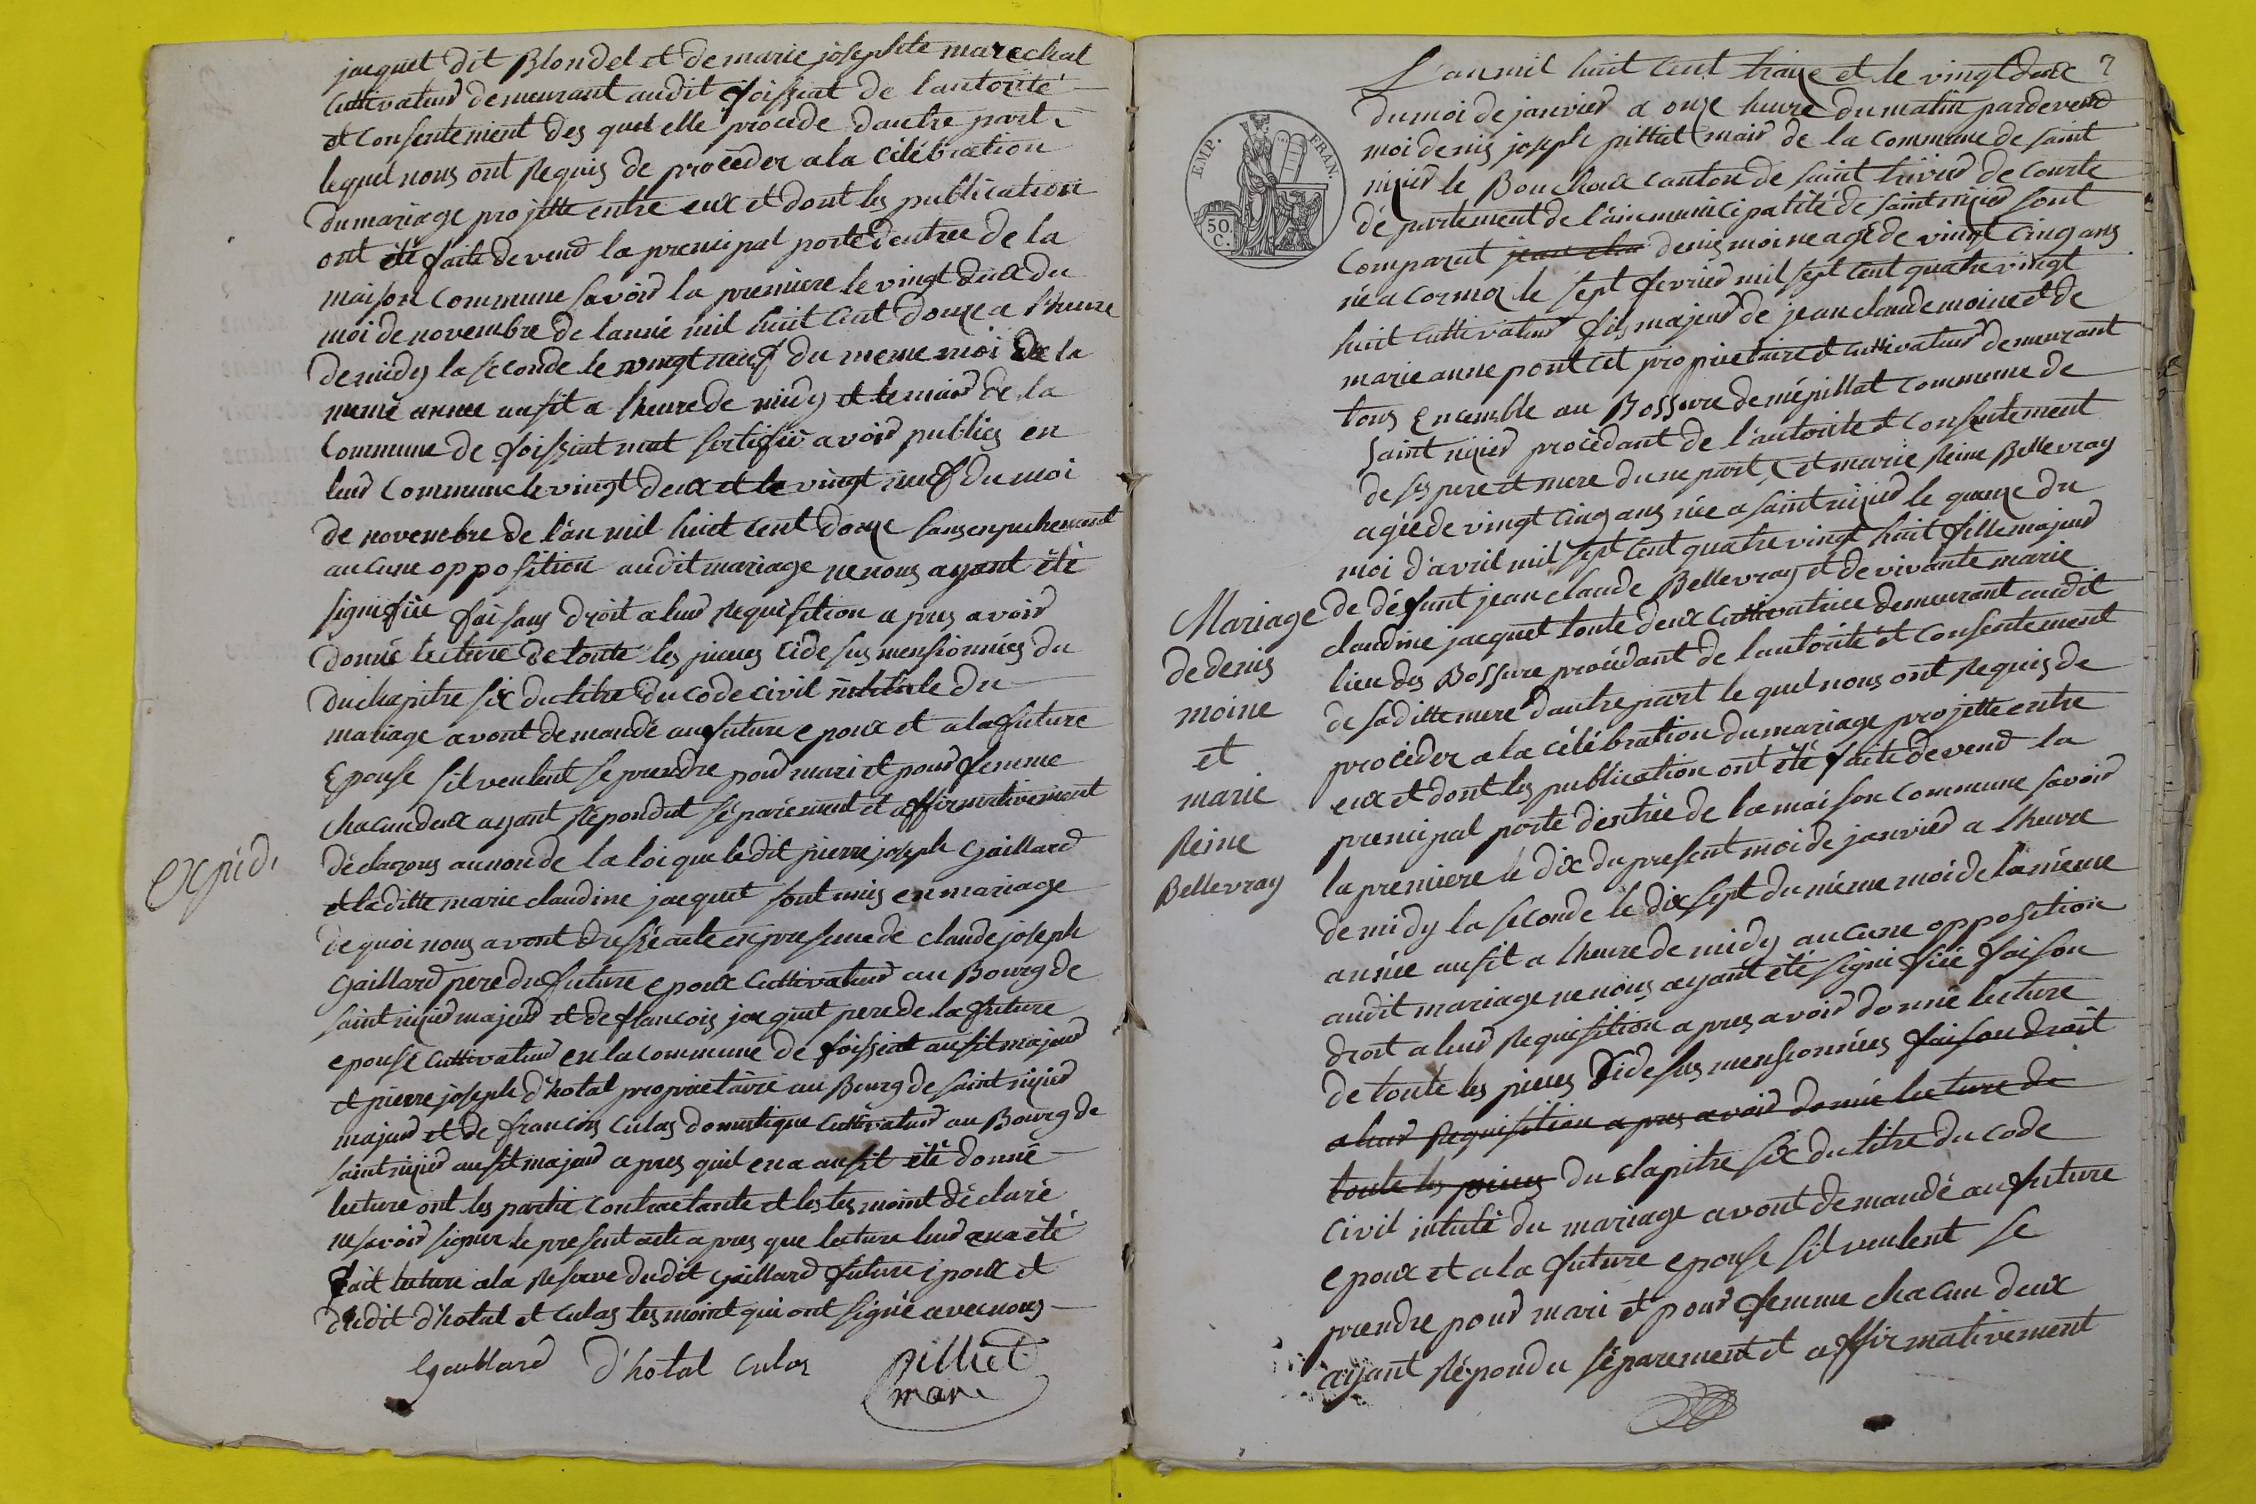 jacquet dit Blondel et de marie josephte marechal
Cultivateur demeurant audit foissiat de l'autorité
et consentement des quel elle procede dautre part
lequel nous ont Requis de procèder a la célébration
du mariage projette entre eux et dont les publication
ont été faite devend la principal porte dentree de la
maison commune savoir la premiere le vingt deux du
moi de novembre de lanné mil huit cent douze a lheure
de midy la seconde le vingt neuf du meme moi de la
meme annee ausit a lheure de midy et le mair de la
Commune de foissiat mat sertifiè avoir publies en
leur commune le vingt deux et le vingt neuf du moi
de novembre de l'an mil huit cent douze sans enpechement
aucune opposition audit mariage ne nous ayant été
signifiée faisans droit a leur Requisition a pres avoir
donné lecture de toute les pieces cidesus mensionnées du
du chapitre six du titre du code civil intitule du
mariage avont demandé au future epoux et a la future
Epouse sil veulent se prendre pour mari et pour femme
chacun deux ayant Repondut séparément et affirmativement
déclarons au non de la loi que ledit pierre joseph Gaillard
et la ditte marie claudine jacquet sont unis en mariage
expéd.
de quoi nous avont dressé acte en presence de claude joseph
Gaillard pere du future epoux Cultivateur au Bourg de
saint nizier majeur et de francois jacquet pere de la future
epouse cultivateur en la commune de foissiat ausit majeur
et pierre joseph d'hotal proprietaire au Bourg de saint nizier
majeur et de francois Culas domestique Cultivateur au Bourg de
saint nizier ausit majeur a pres quil en a ausit été donné
lecture ont les partie contractante et les tesmoint déclaré
ne savoir signer le present acte a pres que lecture leur en a été
fait lecture a la Reserve dudit Gaillard future époux et
dudit d'hotal et Culas tesmoint qui ont signé avec nous
Gaillard d'hotal Culas pilliet
mair
L'an mil huit cent traize et le vingt deux
du moi de janvier a onze heure du matin pardevend
moi denis joseph pilliat mair de la commune de saint
nizier le Bouchoux canton de saint trivier de courte
département de l'ain municipalité de saint nizier sont
Comparut jean clau denis moine agé de vingt cinq ans
né a cormoz le sept fevrier mil sept cent quatre vingt
huit cultivateur fils majeur de jean claude moine et de
marie anne poncet proprietaire et cultivateur demeurant
tous Encemble au Bossure de mépillat commune de
saint nizier procèdant de l'autorite et consentement
de ses pere et mere dune part, et marie Reine Bellevray
agée de vingt cinq ans née a saint nizier le quenze du
moi d'avril mil sept cent quatre vingt huit fille majeur
de défunt jean claude Bellevray et de vivante marie
claudine jacquet toute deux Cultivatrice demeurant audit
lieu des Bossure procédant de l'autorité et consentement
de sa ditte mere dautre part le quel nous ont Requis de
procéder a la célébration du mariage projette entre
eux et dont les publication ont été faite devend la
principal porte dentrée de la maison commune savoir
la premiere le dix du present moi de janvier a lheure
de midy la seconde le dix sept du méme moi de la méme
année ausit a lheure de midy aucune opposition
audit mariage ne nous ayant été signifiée faison
droit a leur Requisition a pres avoir donné lecture
de toute les pieces cidesus mensionnées faison droit
a leur Requisition a pres avoir donné lecture de
toute les pieces du chapitre six du titre du code
civil intulé du mariage avont demandé au future
epoux et a la future epouse sil veulent se
prendre pour mari et pour femme chacun deux
ayant Répondu séparement et affirmativement
Mariage
de denis
moine
et
marie
Reine
Bellevray
EMP. FRAN.
50 C.